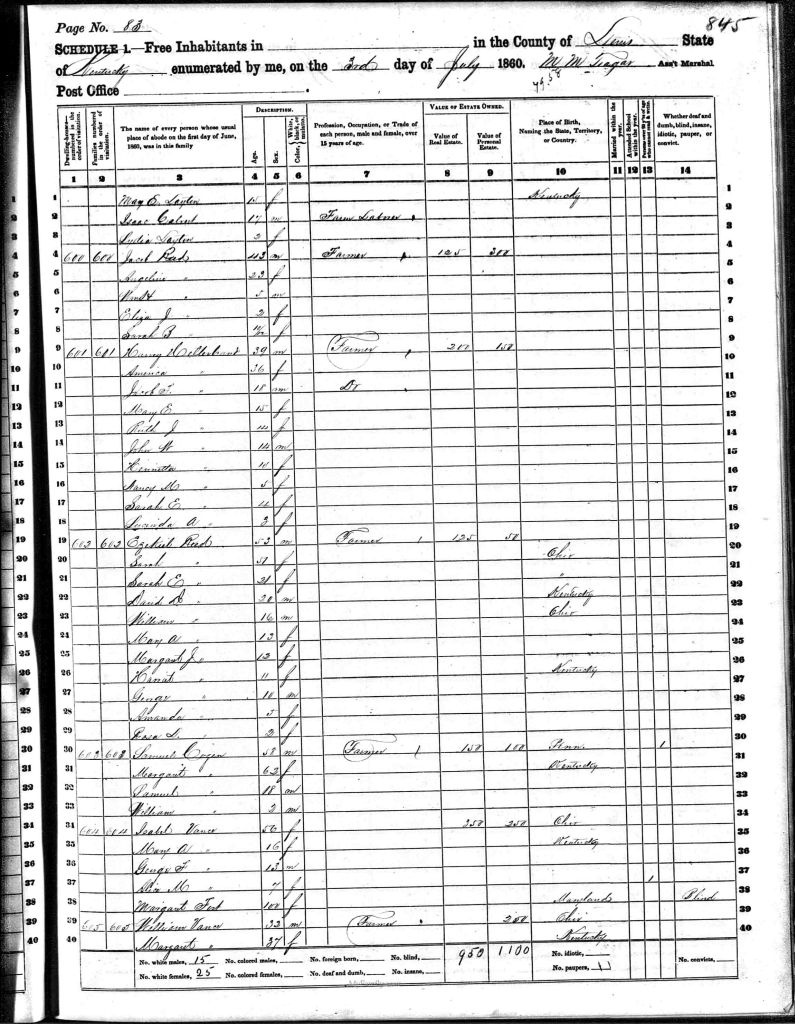 Page No. 83
845
SCHEDULE 1.—Free Inhabitants in in the County of Lewis State
of Kentucky enumerated by me, on the 3rd day of July 1860. Ass't Marshal
Post Office
Dwelling-houses—numbered in the order of visitation.
Families numbered in the order of visitation.
The name of every person whose usual place of abode on the first day of June, 1860, was in this family
DESCRIPTION.
Age.
Sex.
Color, White, black, or mulatto.
Profession, Occupation, or Trade of each person, male and female, over 15 years of age.
VALUE OF ESTATE OWNED.
Value of Real Estate.
Value of Personal Estate.
Place of Birth, Naming the State, Territory, or Country.
Married within the year.
Attended School within the year.
Whether deaf and dumb, blind, insane, idiotic, pauper, or convict.
1 2 3 4 5 6 7 8 9 10 11 12 13 14
1 f Kentucky
2 Isaac 17 m Farm Laborer
3 Lydia 2 f
4 600 600 Jacob 43 m Farmer 125 300
5 Angeline " 23 f
6 " 5 m
7 Eliza J " 2 f
8 Sarah B " f
9 601 601 Harvey 39 m Farmer 200 150
10 America " 36 f
11 Jacob T " 18 m Do
12 Mary E " 15 f
13 Ruth J " 14 f
14 John W " 14 m
15 Henrietta " f
16 Nancy M " 5 f
17 Sarah E " 4 f
18 Lucinda A " f
19 602 602 Ezekiel Reed 53 m Farmer 125 50
20 Sarah " 51 f Ohio
21 Sarah E " 21 f "
22 David " 20 m Kentucky
23 William " 16 m Ohio
24 Mary A " 13 f
25 Margaret J " 12 f
26 " 11 f Kentucky
27 George " 10 m
28 Amanda " 5 f
29 Rosa " 2 f
30 603 603 Samuel 58 m Farmer 150 100 Penn 1
31 Margaret " 62 f Kentucky
32 Samuel " 18 m
33 William " 2 m
34 604 604 Isabel Vance 56 f 350 250 Ohio
35 Mary A " 16 f Kentucky
36 George F " 13 m
37 M " 7 f 1
38 Margaret 100 f Maryland Blind
39 605 605 William Vance 32 m Farmer 200 Ohio
40 Margaret " 27 f Kentucky
No. white males, 15 No. colored males, No. foreign born, No. blind, 950 1100 No. idiotic,
No. white females, 25 No. colored females, No. deaf and dumb, No. insane, No. paupers, No. convicts,